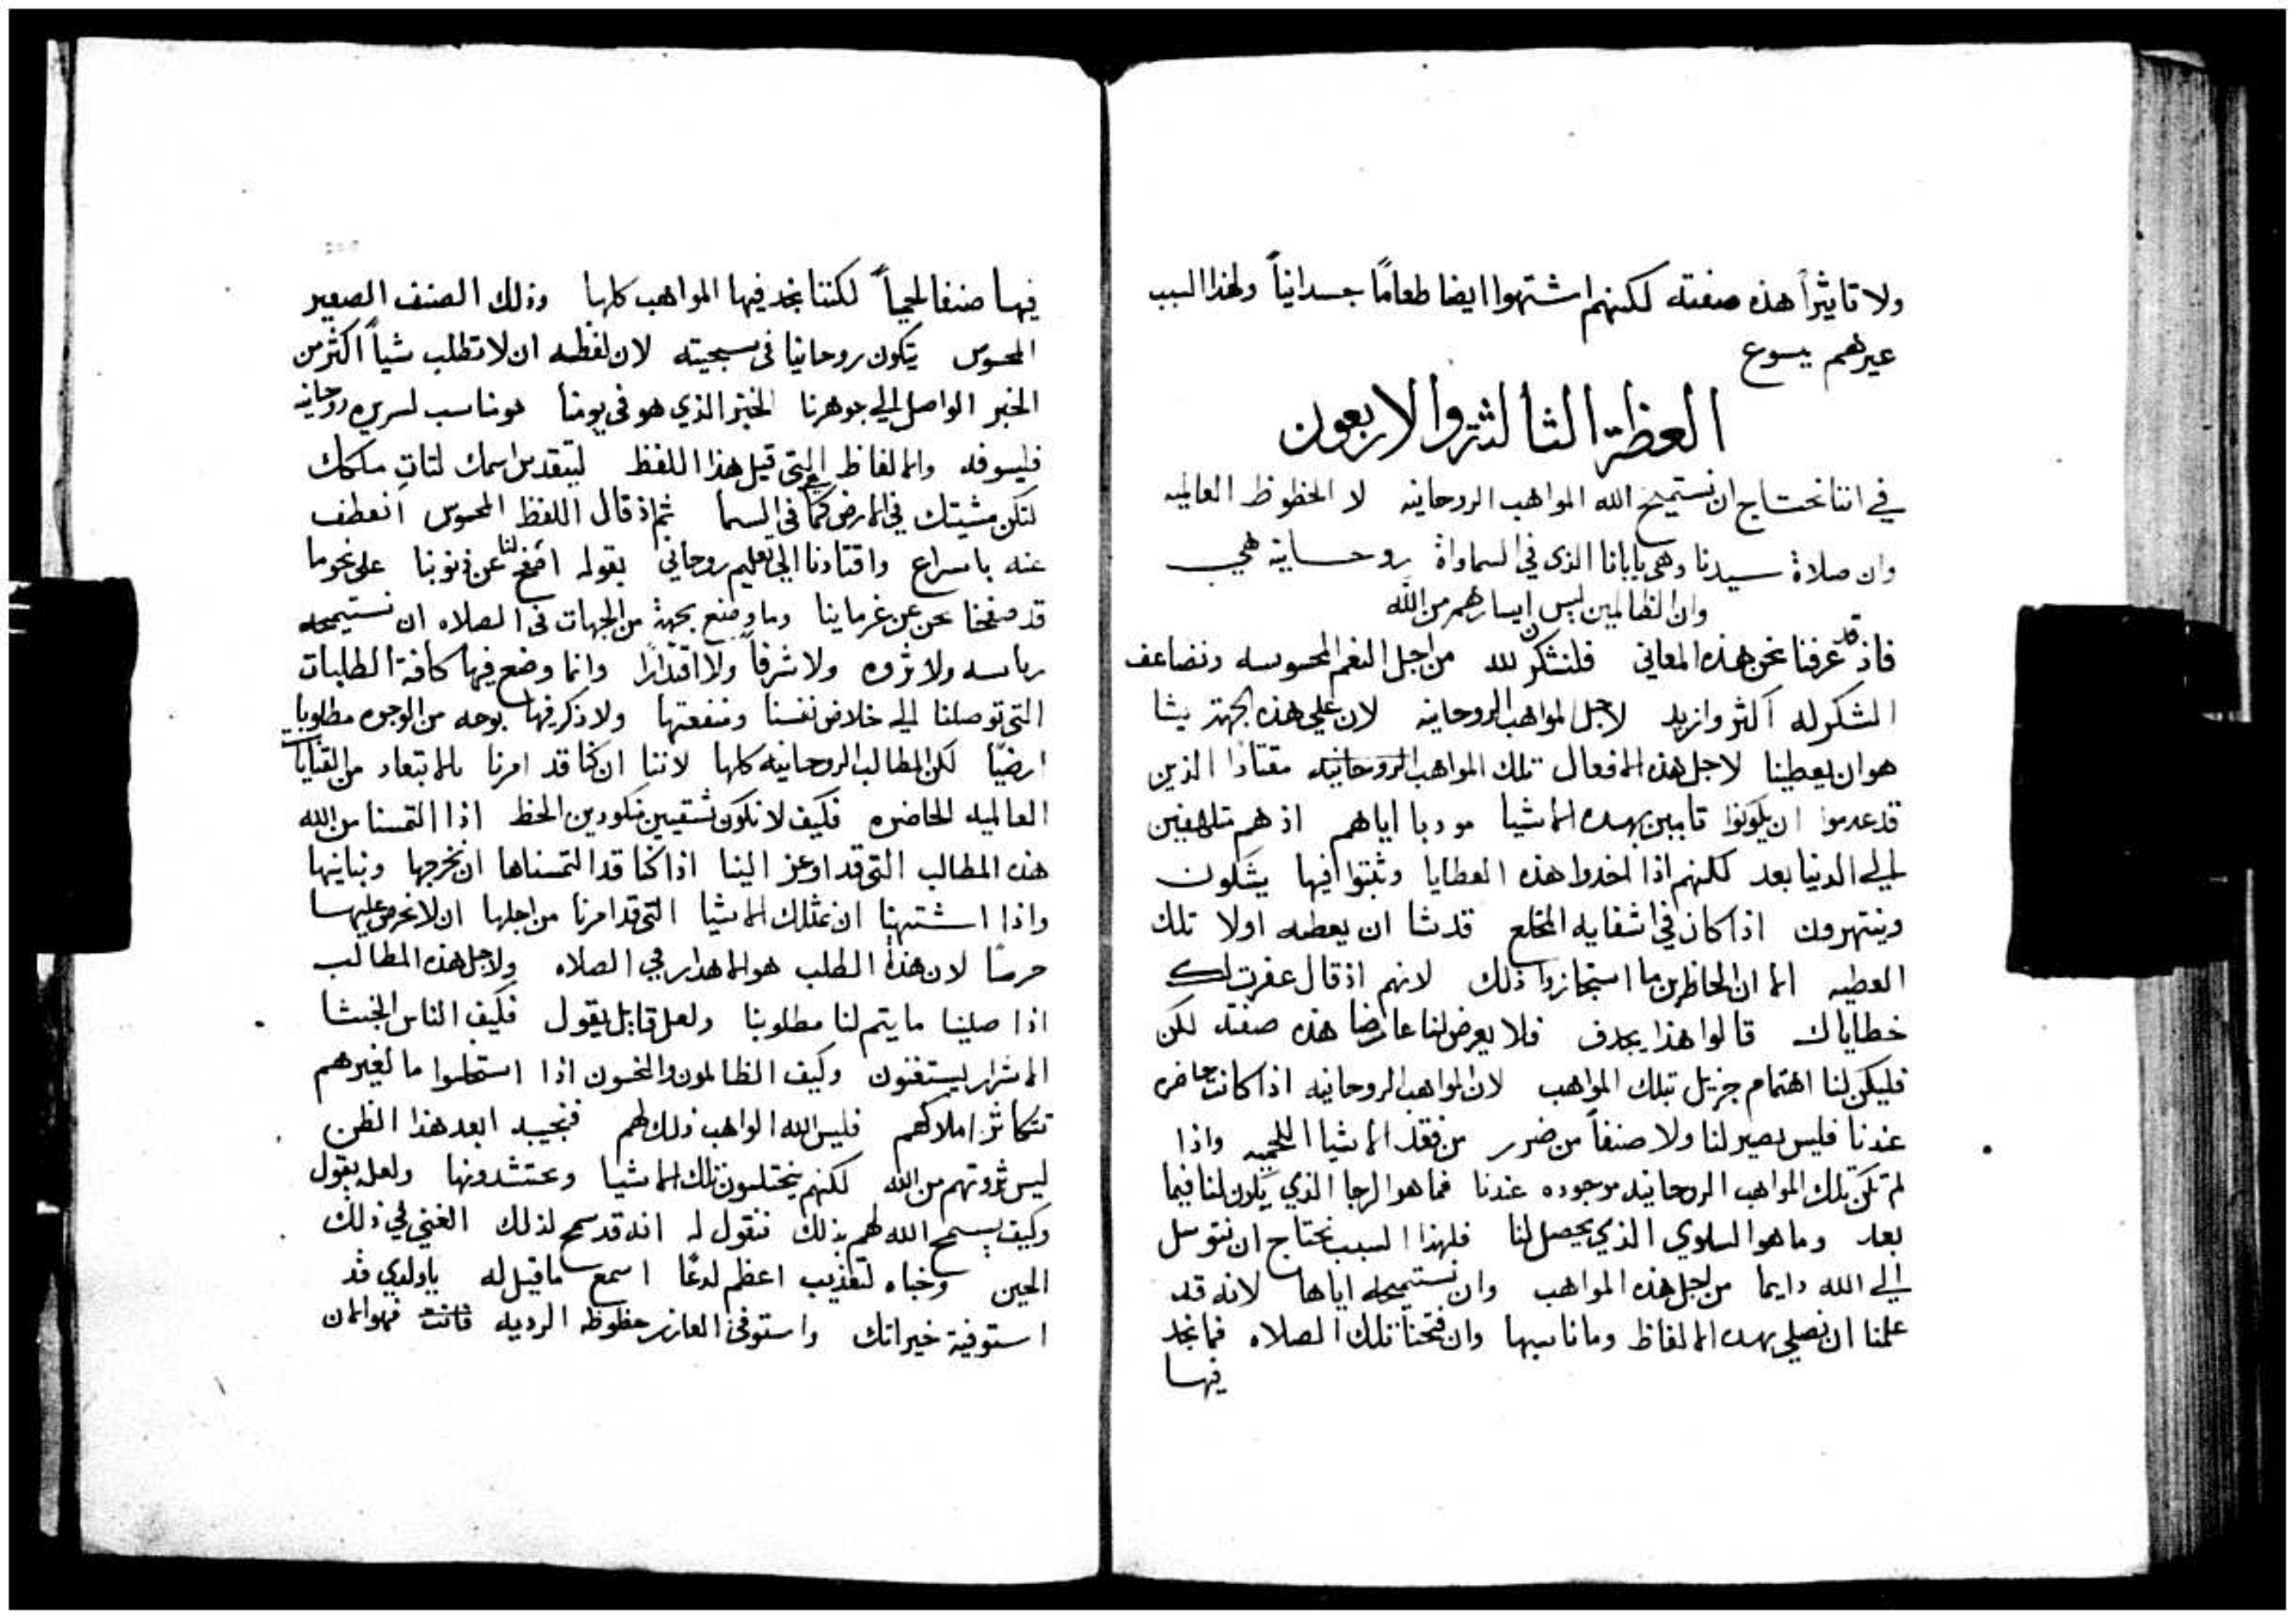 ولا تاثيرًا هذه صفته لكنهم اشتهوا ايضا طعامًا جسدانيًا ولهذا السبب
عيرهم يسوع
العظة الثالثة والاربعون
في اننا نحتاج ان نستميح الله المواهب الروحانيه لا الحظوظ العالميه
وان صلاة سيدنا وهي يابانا الذي في السماواة روحانية هي
وان الظالمين ليس ايسارهم من الله
فاذ قد عرفنا نحن هذه المعاني فلنشكرن لله من اجل النعم المحسوسه ونضاعف
الشكر له اكثر وازيد لاجل المواهب الروحانيه لان علي هذه الجهة يشا
هو ان يعطينا لاجل هذه الافعال تلك المواهب الروحانيه مقتادًا الذين
قد عدموا ان يكونوا تاببين بهده الاشيا مودبا اياهم اذ هم متلهفين
الي الدنيا بعد لكنهم اذا اخدوا هذه العطايا وثبتوا فيها يشكون
وينتهرون اذا كان في اشفايه المخلع قد شا ان يعطه اولا تلك
العطيه الا ان الحاظرين ما استجازوا ذلك لانهم اذ قال غفرت لك
خطاياك قالوا هذا يجدف فلا يعرض لنا عارضا هذه صفته لكن
فليكن لنا اهتمام جزيل بتلك المواهب لان المواهب الروحانيه اذا كانت حاضره
عندنا فليس يصير لنا ولا صنفاً من ضرر من فقد الاشيا اللحميه واذا
لم تكن تلك المواهب الروحانيه موجوده عندنا فما هو الرجا الذي يكون لنا فيما
بعد وما هو السلوي الذي يحصل لنا فلهذا السبب نحتاج ان نتوسل
الي الله دايما من اجل هذه المواهب وان نستميحه اياها لانه قد
علمنا ان نصلي بهده الالفاظ وما ناسبها وان فتحنا تلك الصلاه فما نجد
فيها
فيها صنفا لحمياً لكننا نجد فيها المواهب كلها وذلك الصنف الصغير
المحسوس يتكون روحانيا في سجيته لان لفظه ان لا تطلب شياً اكثر من
الخبز الواصل الي جوهرنا الخبز الذي هو في يومنا هو مناسب لسريره روحانيه
فليسوفه والالفاظ التي قبل هذا اللفظ ليتقدس اسمك لتات ملكك
لتكن مشيتك في الارض كما في السما ثم اذ قال اللفظ المحسوس انعطف
عنه باسراع واقتادنا الي تعليم روحاني بقوله اصفح لنا عن ذنوبنا علي نحو ما
قد صفحنا نحن عن غرماينا وما وضع بجهة من الجهات في الصلاه ان نستيمحه
رياسه ولا ثروه ولا شرفاً ولا اقتدارًا وانما وضع فيها كافة الطلبات
التي توصلنا الي خلاص نفسنا ومنفعتها ولا ذكر فيها بوجه من الوجوه مطلوبا
ارضيًا لكن المطالب الروحانيه كلها لاننا ان كنا قد امرنا بالابتعاد من القنايات
العالميه الحاضره فكيف لا نكون شقيين منكودين الحظ اذا التمسنا من الله
هذه المطالب التي قد اوعز الينا اذا كنا قد التمسناها ان نخرجها ونباينها
واذا اشتهينا ان نمتلك الاشيا التي قد امرنا من اجلها ان لا نحرص عليها
حرصًا لان هذا الطلب هو الاهدار في الصلاه ولاجل هذه المطالب
اذا صلينا ما يتم لنا مطلوبنا ولعل قايل يقول فكيف الناس الخبثا
الاشرار يستغنون وكيف الظالمون والنجسون اذا اختلسوا ما لغيرهم
تتكاثر املاكهم فليس الله الواهب ذلك لهم فنجيب ابعد هذا الظن
ليس ثروتهم من الله لكنهم يختلسون تلك الاشيا ويحتشدونها ولعله يقول
وكيف يسمح الله لهم بذلك فنقول له انه قد سمح لذلك الغني في ذلك
الحين وخباه لتعذيب اعظم لدغًا اسمع ما قيل له ياولدي قد
استوفية خيراتك واستوفي العازر حظوظه الرديه فانت فهو الان